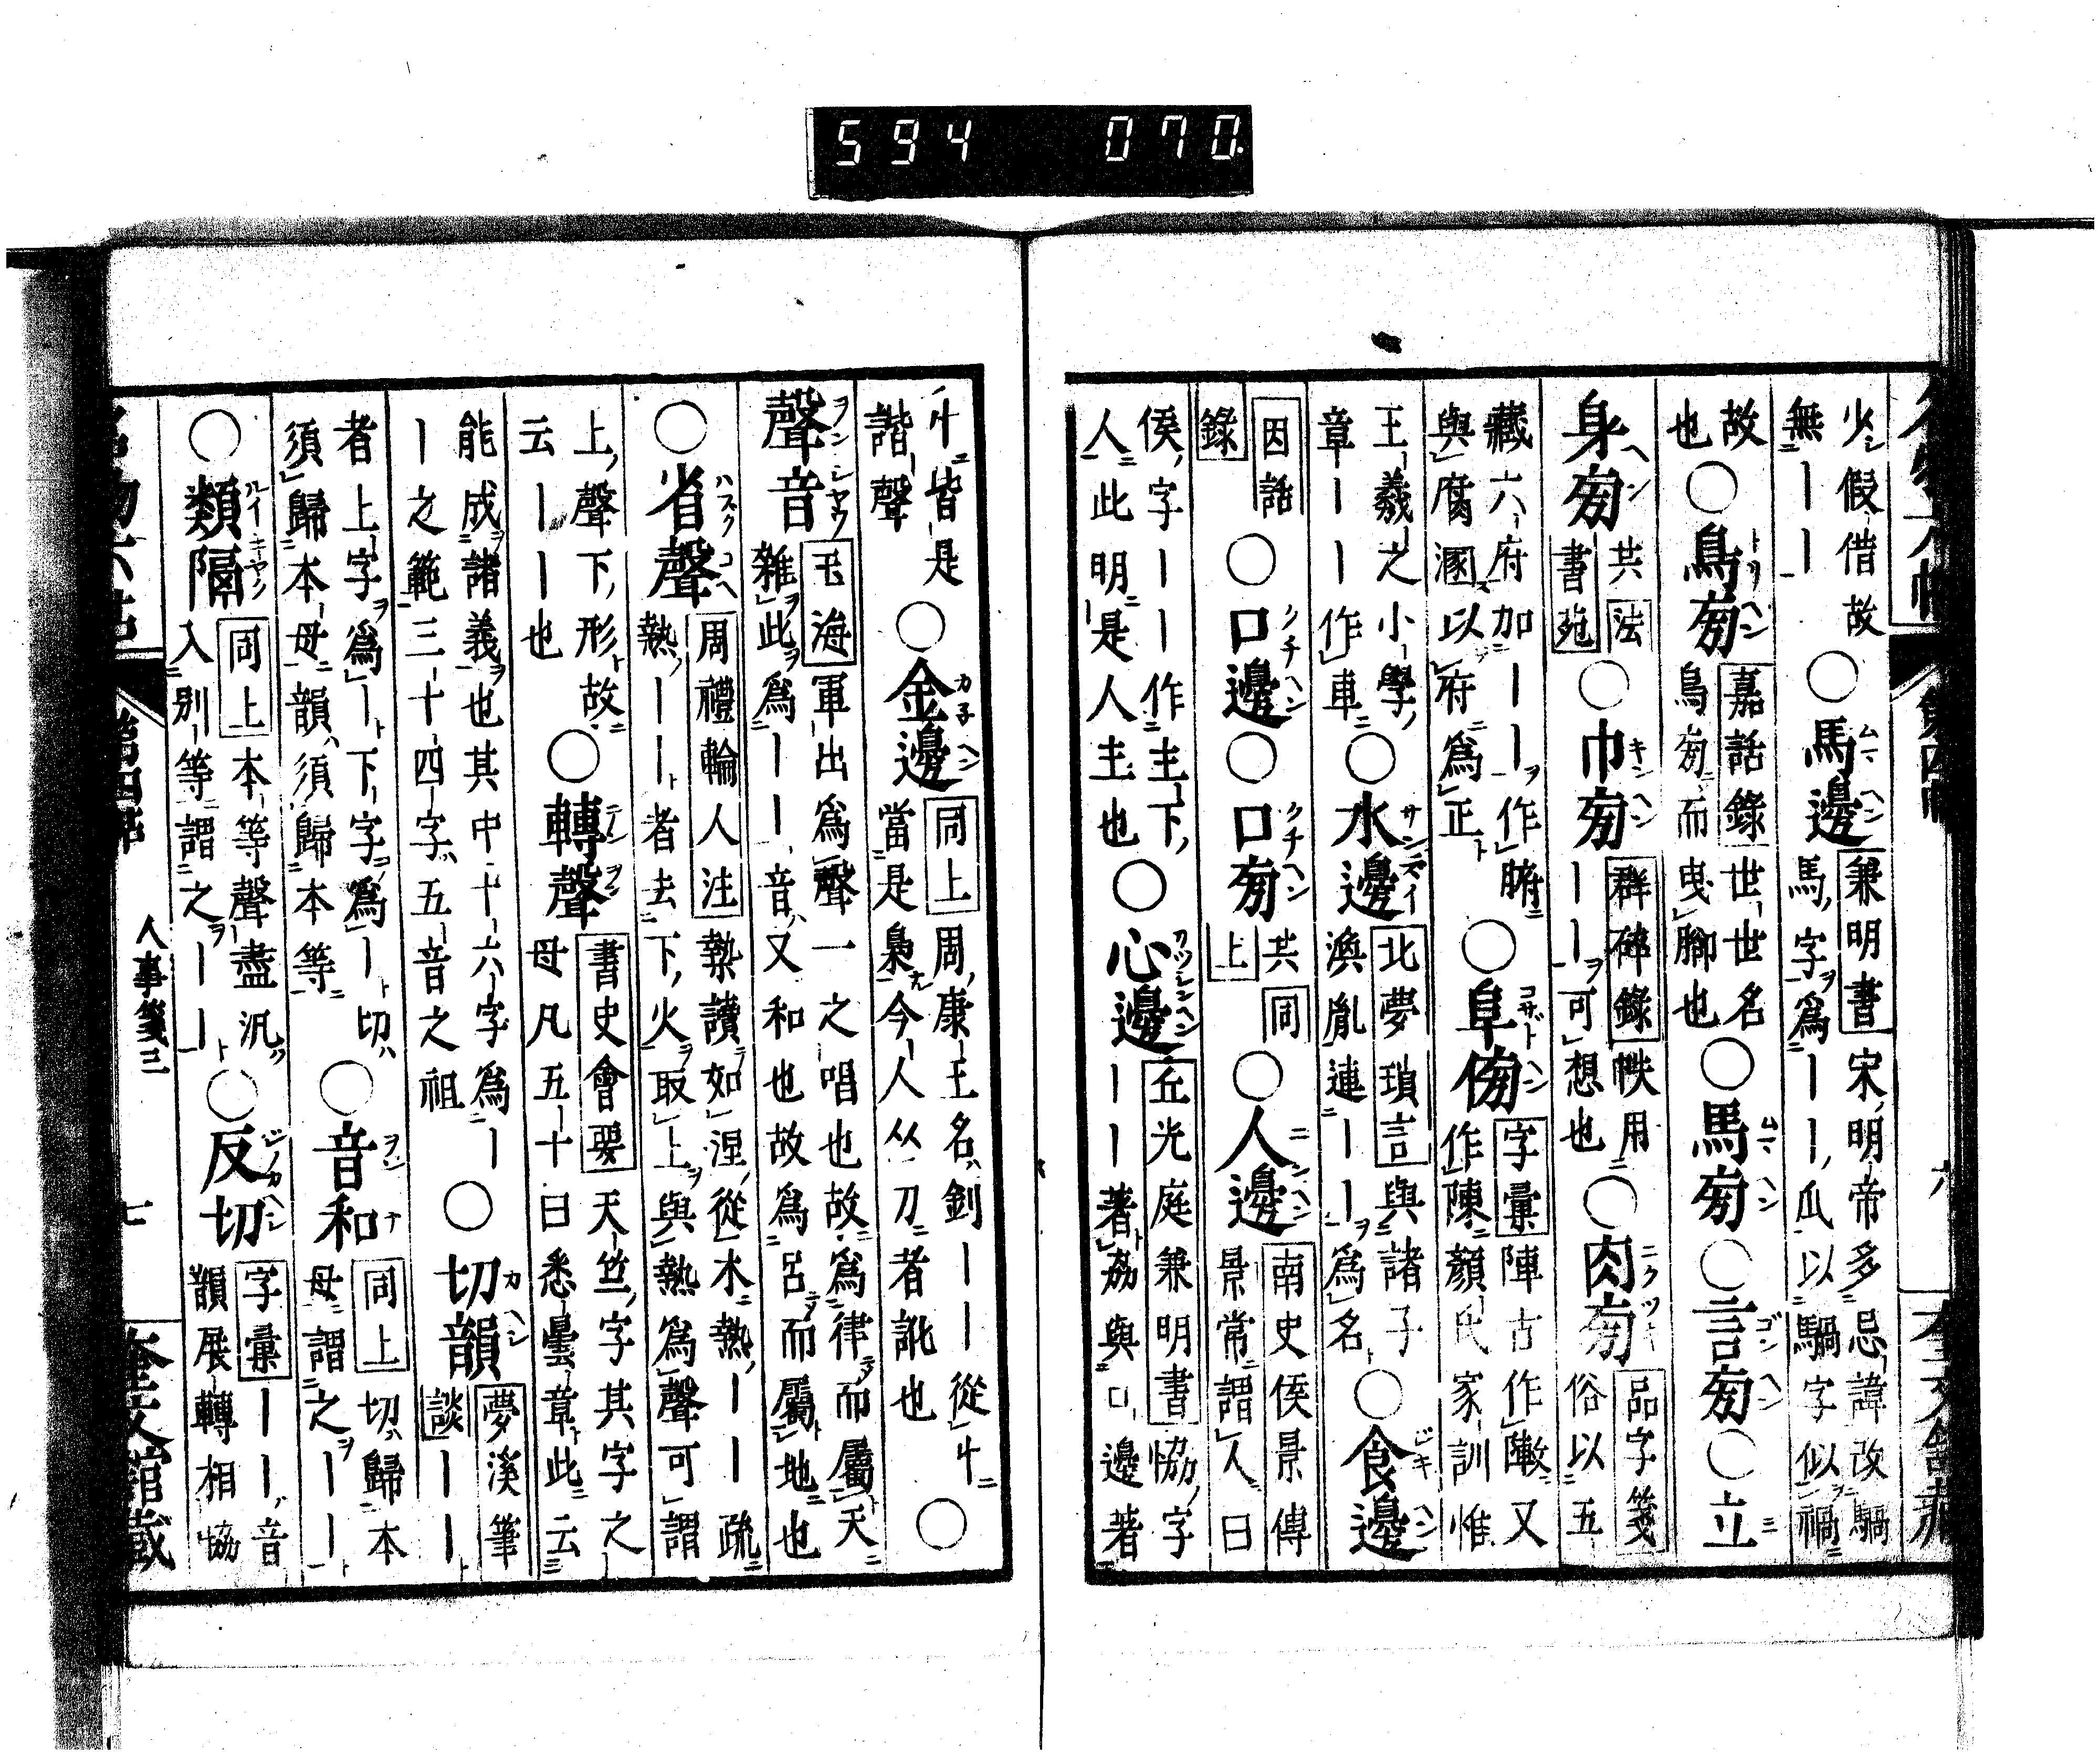 594 070
火假借故
無｜｜
○馬邊
兼明書
宋明帝多忌諱改騧
馬字爲｜｜瓜以騧字似禍
故
也
○鳥旁
嘉話錄
世世名
鳥旁而曳腳也
○馬旁○言旁○立
身旁
共法
書苑
○巾旁
群碎錄
帙用
｜｜｜可想也
○肉旁
品字箋
俗以五
藏六府加｜｜作腑
與腐溷以府爲正
○阜傍
字彙
陣古作敶又
作陳顏氏家訓惟
王羲之小學
章｜｜｜作車
○水邊
北夢瑣言
與諸子
渙胤連｜｜爲名
○食邊
因話
錄
○口邊○口旁
共同
上
○人邊
南史侯景傳
景常謂人曰
侯字｜｜作主下
人此明是人主也
○心邊
丘光庭兼明書
恊字
｜｜著劦與口邊著
十皆是
諧聲
○金邊
同上
周康王名釗｜｜從十
當是梟今人从刀者訛也
○
聲音
玉海
軍出爲聲一之唱也故爲律而屬天
雜此爲｜｜音又和也故爲呂而屬地也
○省聲
周禮輪人注
槷讀如涅從木熱｜｜疏
熱｜｜者去下火取上與熱爲聲可謂
上聲下形故
云｜｜也
○轉聲
書史會要
天竺字其字之
母凡五十曰悉曇章此云
能成諸義也其中十六字爲｜
｜之範三十四字五音之祖
○切韻
夢溪筆
談
｜｜
者上字爲｜下字爲｜切
須歸本母韻須歸本等
○音和
同上
切歸本
母謂之｜｜
○類隔
同上
本等聲盡汎
入別等謂之｜｜
○反切
字彙
｜｜音
韻展轉相協
人事箋三
七
奎文館藏